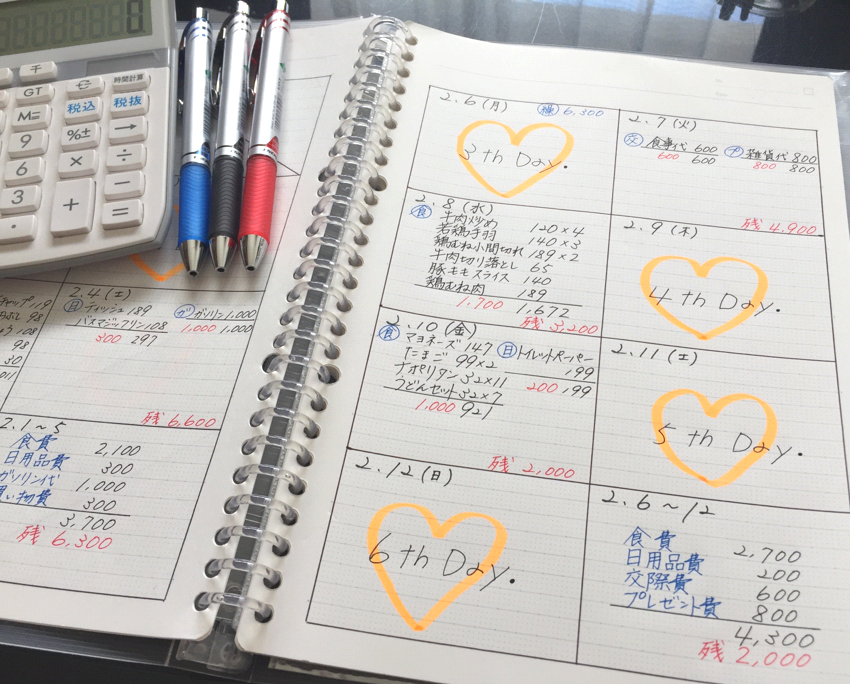 0
千
€
時間計算
GT
税込
税抜
M=
9
%±
→
6
×
÷
3
+
−
.
=
19
98
108
98
30
2.4(土)
日 ティッシュ 189
バスマジックリン 108
300 297
ガ ガソリン 1,000
1,000 1,000
残 6,600
2.1〜5
食費 2,100
日用品費 300
ガソリン代 1,000
買い物費 300
3,700
残 6,300
2.6(月)
6,300
3th Day.
2.7(火)
交 食事代 600
600 600
プ 雑貨代 800
800 800
残 4,900
2.8(水)
食 牛肉炒め 120×4
若鶏手羽 140×3
鶏むね小間切れ 189×2
牛肉切り落とし 65
豚ももスライス 140
鶏むね肉 189
1,700 1,672
残 3,200
2.9(木)
4th Day.
2.10(金)
食 マヨネーズ 147
たまご 99×2
ナポリタン 32×11
うどんセット 32×7
1,000 921
日 トイレットペーパー
199
200 199
残 2,000
2.11(土)
5th Day.
2.12(日)
6th Day.
2.6〜12
食費 2,700
日用品費 200
交際費 600
プレゼント費 800
4,300
残 2,000